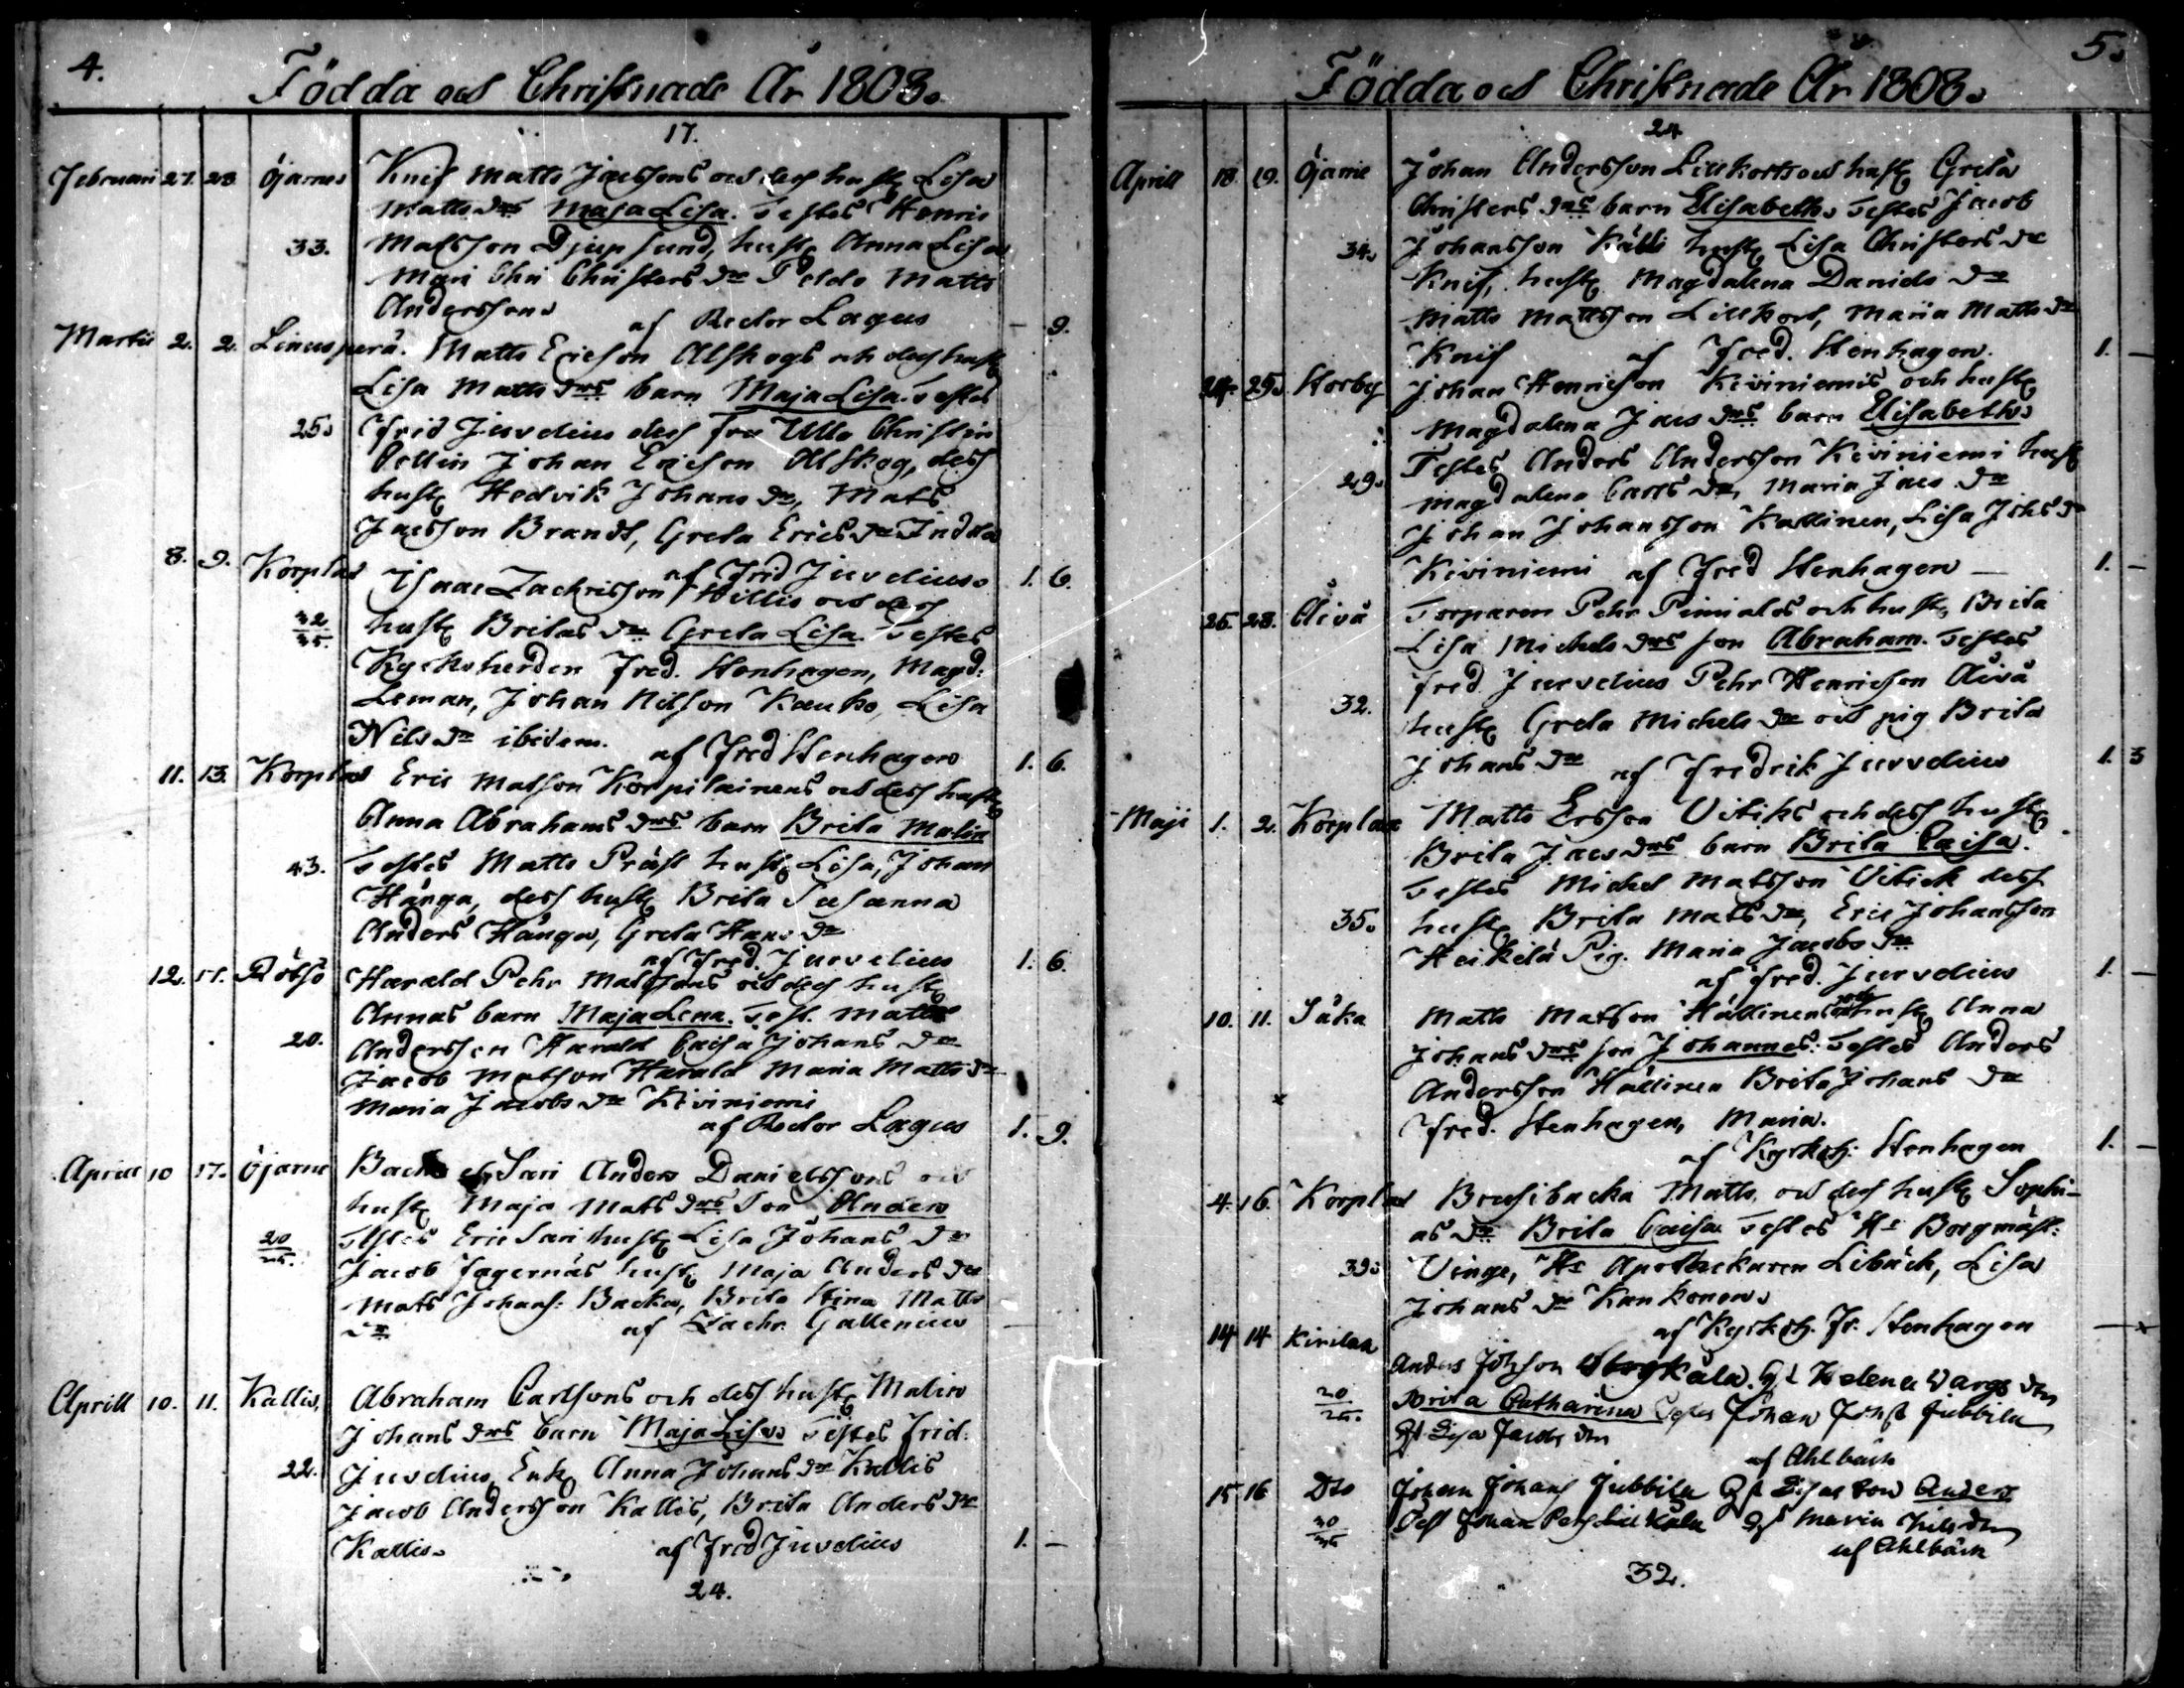 4.
Födda och Christnade År 1808.
17.
Februari 27. 28 Öjarne Knif Matts Jacssons och dess hust Lisa
Matts drs Maja Lisa. Testes Henric
33. Matsson Djupsund, hust Anna Lisa
Mari Christers dr Peldo Matts
Andersson
af Rector Lagus — 9.
Martii 2. 2. Linusperä. Matts Ericson Alskogs och dess hust
Lisa Matts drs barn Maja Lisa. Testes
25. Frid Juvelius dess fru Ulla Christin
Johan Ericson Alskog, dess
hust Hedvik Johans dr, Mats
Jacsson Brandt, Greta Erics dr Indola
af Frid Juvelius. 1. 6.
8. 9. Korplax Isaac Zachrisson Hillis och dess
32/35. hust Britas dr Greta Lisa. Testes
Kyrkoherden Fred. Stenhagen, Magd:
Leman, Johan Nilsson Kauko, Lisa
Nils dr ibidem.
af Fred Stenhagen 1. 6.
11. 13. Korplax Eric Matsson Korpilainens och dess hust
Anna Abrahams drs barn Brita Malin
43. Testes Matts Präst hust Lisa, Johan
Hånga, dess hust Brita Susanna
Anders Hånga, Greta Hans dr
af Fred. Juvelius 1. 6.
12. 17. Röbso Harald Pehr Matssons och dess hust
Annas barn Maja Lena. Test. Matts
20. Andersson Harald Caisa Johans dr
Jacob Matsson Harald Maria Matts dr
Maria Jacobs dr Kiviniemi
af Rector Lagus 1. 9.
Aprill 10 17. Öjarne Backa Sari Anders Danielssons och
hust Maja Mats drs Son Anders
20/25. Testes Eric Sari hust Lisa Johans dr
Jacob Fagernäs hust Maja Anders dr
Mats Johans: Backa, Brita Stina Matts
dr af Zachr. Gallenius —
Aprill 10. 11. Kallis, Abraham Carlsons och dess hust Malin
Johans drs barn Maja Lisa. Testes Frid:
22. Juvelius, Enk Anna Johans dr Kallis
Jacob Andersson Kallis, Brita Anders dr
Kallis. af Fred Juvelius 1. —
24.
5.
Födda och Christnade År 1808.
24
Aprill 18. 19. Öjarne Johan Andersson Lillkorts och hust Greta
Christers drs barn Elisabeth. Testes Jacob
34. Johansson Källi hust Lisa Christers dr
Knif, hust Magdalena Daniels dr
Matts Mattsson Lillkort, Maria Matts dr
Knif af Fred. Stenhagen. 1. —
24. 25. Storby Johan Henricson Kiviniemis och hust
Magdalena Jacs drs barn Elisabeth.
29. Testes Anders Andersson Kiviniemi hust
Magdalena Carls dr, Maria Jacs dr
Johan Johansson Kallinen, Lisa Johs dr
Kiviniemi af Fred Stenhagen — 1. —
25. 28. Äivå Torparen Pehr och hust Brita
Lisa Michels drs son Abraham. Testes
Fred. Juvelius Pehr Henricson Äivå
32. hust Greta Michels dr och pig Brita
Johans dr af Fredrik Juvelius 1. 3
Maji 1. 2. Korplax Matts Ersson Vitiks och dess hust
Brita Jacs drs barn Brita Caisa.
Testes Michel Matsson Vitick dess
35. hust Brita Mats dr, Eric Johansson
Heikelä Pig. Maria Jacobs dr
af Fred. Juvelius 1. —
10. 11. Såka Matts Matsson Hällinens och hust Anna
Johans drs son Johannes. Testes Anders
Andersson Hällinen Brita Johans dr
x Fred. Stenhagen, Maria.
af Kyrkoh. Stenhagen 1. —
4. 16. Korplax Brusibacka Matts och dess hust Sophi-
as dr Brita Caisa Testes Hr Borgmäst:
39. Vinge, Hr Apothekaren Libäck, Lisa
Johans dr Kankonen.
af Kyrkoh. Fr. Stenhagen — x
14 14 Kirilax Anders Johsson H: Helena Vargs dtr
20/25. Brita Catharina Testes Johan Johs Jubbila
H: Lisa Jacobs dtr
af Ahlbäck
15 16 Dto Johan Johans Jubbila H: Lisas Son Anders
30/35 Test Johan Pers Lillkula H: Maria Nils dtr
af Ahlbäck
32.